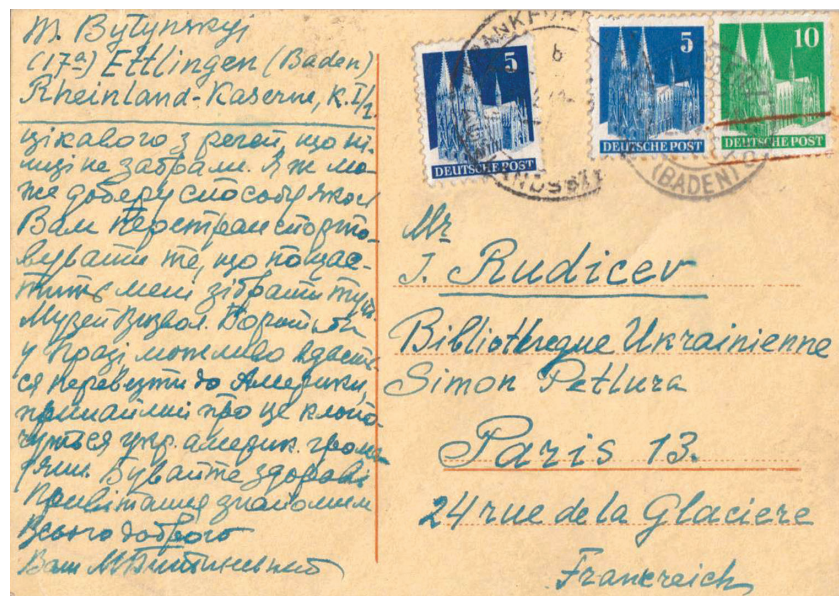 M. Bytynskyj
(17a) Ettlingen (Baden)
Rheinland-Kaserne, k. I/2
цікавого з речей, що ні-
мці не забрали. Я ж мо-
же доберу способу якось
Вам перетранспорто-
вувати те, що пощас-
тить мені зібрати тут.
Музей Визвол. Боротьби
у Празі можливо вдасть-
ся перевезти до Америки,
принаймні про це клопо-
чуться укр. америк. грома-
дяни. Бувайте здорові
Привітання знайомим
Всього доброго
Ваш М Битинський
5
DEUTSCHE POST
5
DEUTSCHE POST
10
DEUTSCHE POST
(BADEN)
Mr
J. Rudicev
Bibliotheque Ukrainienne
Simon Petlura
Paris 13.
24 rue de la Glaciere
Frankreich